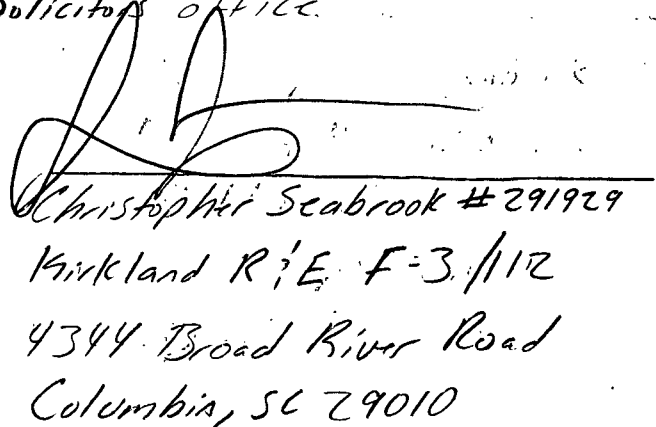 Solicitors office.
Christopher Seabrook # 291929
Kirkland R&E F-3/112
4344 Broad River Road
Columbia, SC 29010